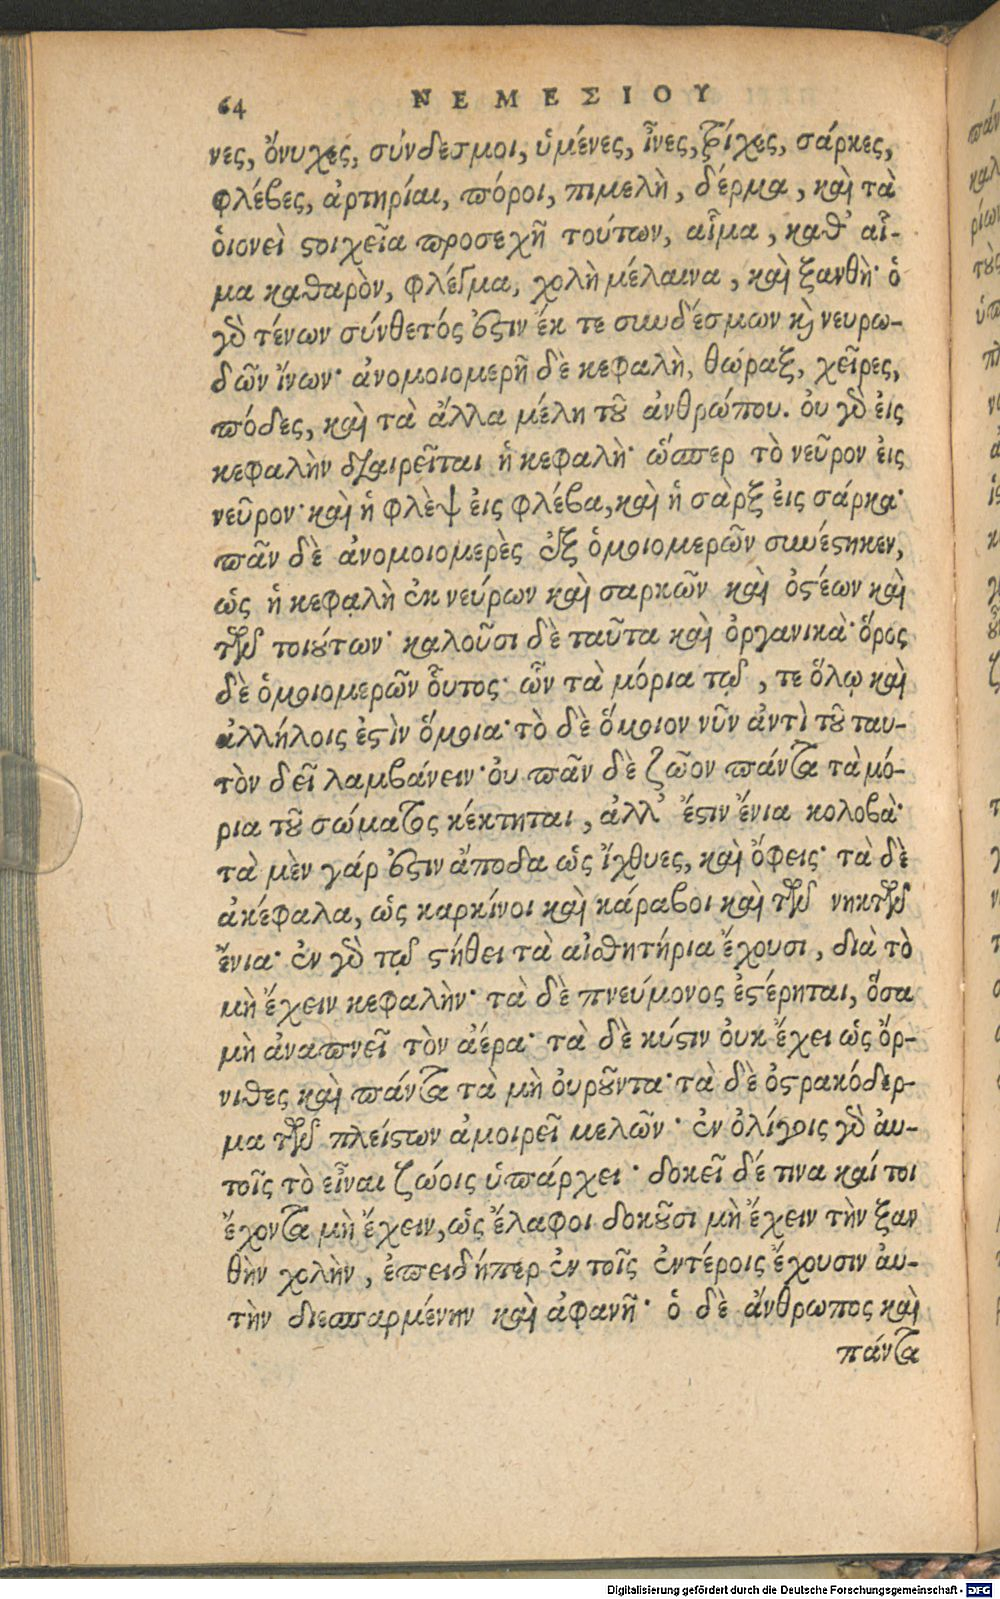 64 ΝΕΜΕΣΙΟΥ
νες, ὄνυχες, σύνδεσμοι, ὑμένες, ἶνες, τρίχες, σάρκες,
φλέβες, ἀρτηρίαι, πόροι, πιμελὴ, δέρμα, καὶ τὰ
ὁιονεὶ στοιχεῖα προσεχῆ τούτων, αἷμα, καθ᾽ αἷ-
μα καθαρὸν, φλέγμα, χολὴ μέλαινα, καὶ ξανθὴ· ὁ
γὰρ τένων σύνθετός ἐστιν ἔκ τε συνδέσμων καὶ νευρω-
δῶν ἴνων· ἀνομοιομερῆ δὲ κεφαλὴ, θώραξ, χεῖρες,
πόδες, καὶ τὰ ἄλλα μέλη τοῦ ἀνθρώπου. ὀυ γὰρ ἐις
κεφαλὴν διαιρεῖται ἡ κεφαλὴ· ὥσπερ τὸ νεῦρον ἐις
νεῦρον· καὶ ἡ φλὲψ ἐις φλέβα, καὶ ἡ σὰρξ ἐις σάρκα·
πᾶν δὲ ἀνομοιομερὲς ἐξ ὁμοιομερῶν συνέστηκεν,
ὡς ἡ κεφαλὴ ἐκ νεύρων καὶ σαρκῶν καὶ ὀστέων καὶ
τῶν τοιούτων· καλοῦσι δὲ ταῦτα καὶ ὀργανικὰ· ὅρος
δὲ ὁμοιομερῶν οὗτος· ὧν τὰ μόρια τῷ, τε ὅλῳ καὶ
ἀλλήλοις ἐστὶν ὅμοια· τὸ δὲ ὅμοιον νῦν ἀντὶ τοῦ ταυ-
τὸν δεῖ λαμβάνειν· ὀυ πᾶν δὲ ζῶον πάντα τὰ μό-
ρια τοῦ σώματος κέκτηται, ἀλλ᾽ ἔστιν ἔνια κολοβὰ·
τὰ μὲν γάρ ἐστιν ἄποδα ὡς ἴχθυες, καὶ ὄφεις· τὰ δὲ
ἀκέφαλα, ὡς καρκίνοι καὶ κάραβοι καὶ τῶν νηκτῶν
ἔνια· ἐν γὰρ τῷ στήθει τὰ αἰσθητήρια ἔχουσι, διὰ τὸ
μὴ ἔχειν κεφαλὴν· τὰ δὲ πνεύμονος ἐστέρηται, ὅσα
μὴ ἀναπνεῖ τὸν ἀέρα· τὰ δὲ κύστιν ὀυκ ἔχει ὡς ὄρ-
νιθες καὶ πάντα τὰ μὴ ὀυροῦντα· τὰ δὲ ὀστρακόδερ-
μα τῶν πλείστων ἀμοιρεῖ μελῶν· ἐν ὀλίγοις γὰρ ἀυ-
τοῖς τὸ εἶναι ζώοις ὑπάρχει· δοκεῖ δέ τινα καί τοι
ἔχοντα μὴ ἔχειν, ὡς ἔλαφοι δοκοῦσι μὴ ἔχειν τὴν ξαν
θὴν χολὴν, ἐπειδήπερ ἐν τοῖς ἐντέροις ἔχουσιν ἀυ-
τὴν διεσπαρμένην καὶ ἀφανῆ· ὁ δὲ ἄνθρωπος καὶ
πάντα
Digitalisierung gefördert durch die Deutsche Forschungsgemeinschaft - DFG